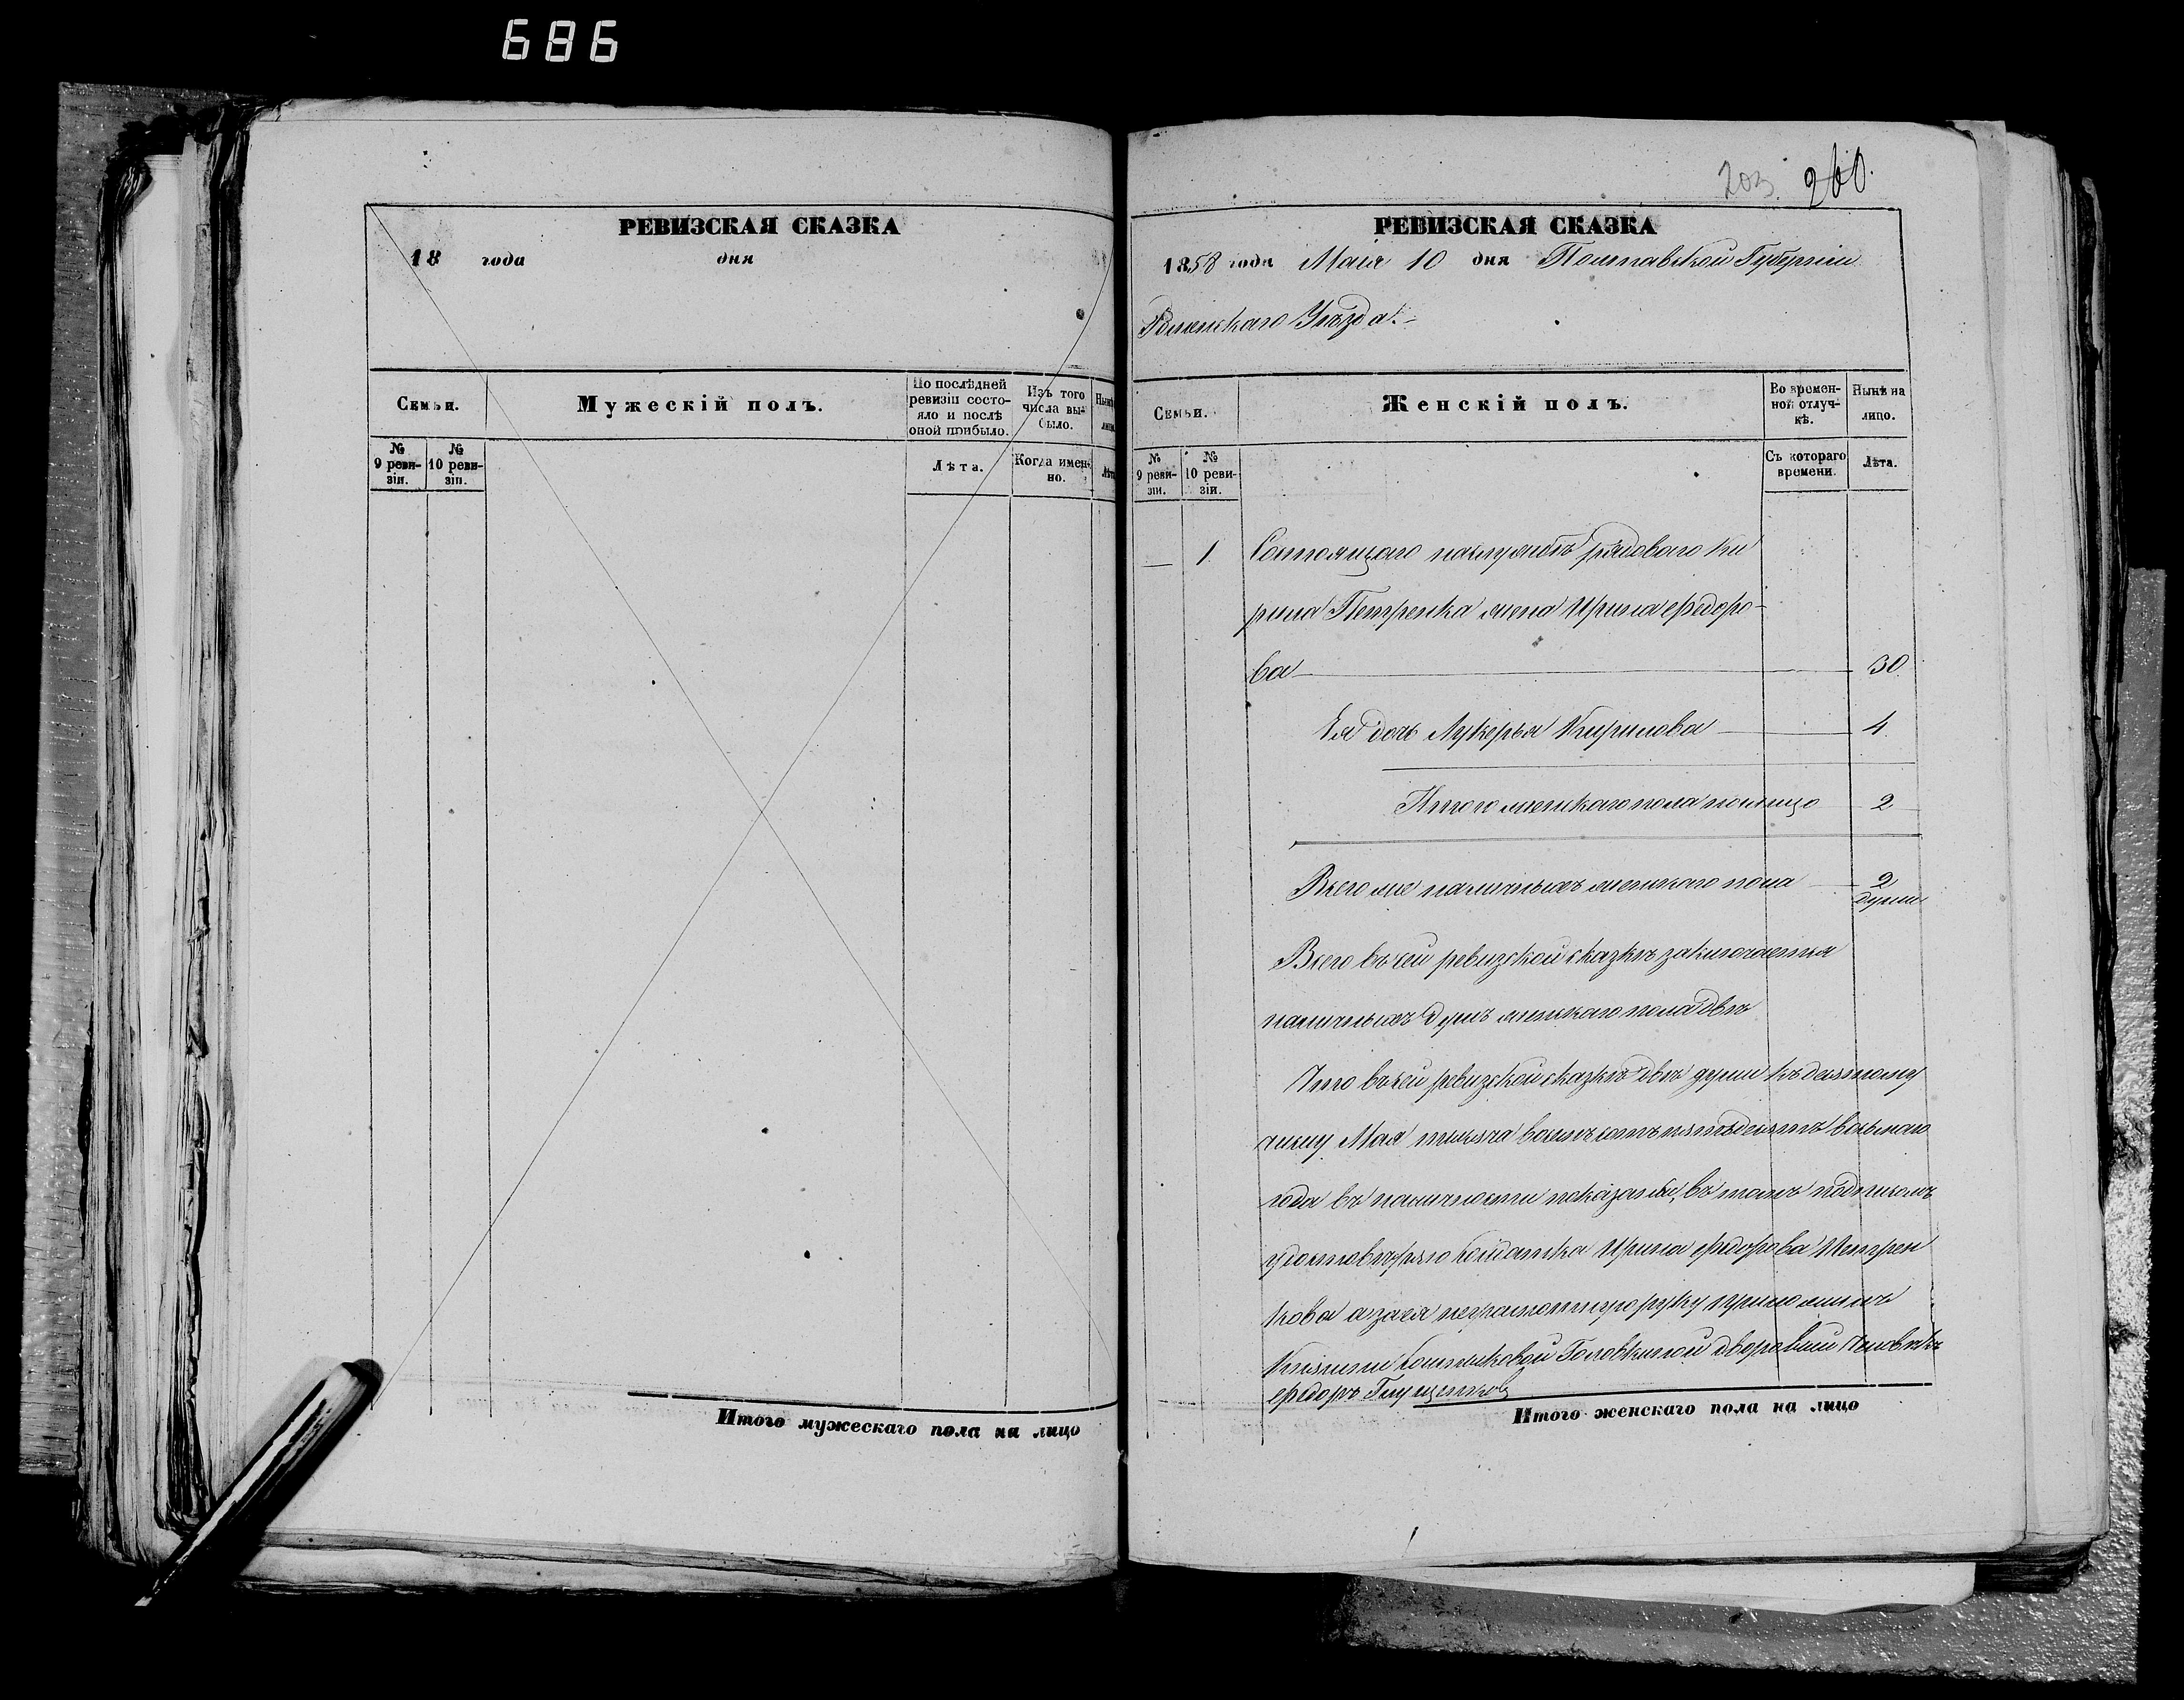 686
РЕВИЗСКАЯ СКАЗКА
18 года дня
Семьи.
Мужескій полъ.
По послѣдней ревизіи состояло и послѣ оной прибыло.
Изъ того числа выбыло.
№ 9 ревизіи.
№ 10 ревизіи.
Лѣта.
Когда именно.
Итого мужескаго пола на лицо
203. 260.
РЕВИЗСКАЯ СКАЗКА
1858 года Маія 10 дня Полтавской Губерніи
Роменскаго Уѣзда.
Семьи.
Женскій полъ.
Во временной отлучкѣ.
Нынѣ на лицо.
№ 9 ревизіи.
№ 10 ревизіи.
Съ котораго времени.
Лѣта.
— 1. Состоящаго наслужбѣ рядоваго Ки
рила Петренка жена Ирина Федоро-
ва 30.
Ея дочь Лукерья Кирилова 4.
Итого женскаго пола налицо 2
Всего же наличныхъ женскаго пола 2
души
Всего въ сей ревизской сказкѣ заключается
наличныхъ душъ женскаго пола двѣ
Что въ сей ревизской сказкѣ двѣ души къ десятому
числу Мая тысяча восемь сотъ пятьдесятъ восьмаго
года въ наличности показаны, въ томъ подпискою
удостовѣряю Солдатка Ирина Федорова Петрен
кова а за ея неграмотную руку приложилъ
Княгини Головкиной дворовый человѣкъ
Федоръ
Итого женскаго пола на лицо